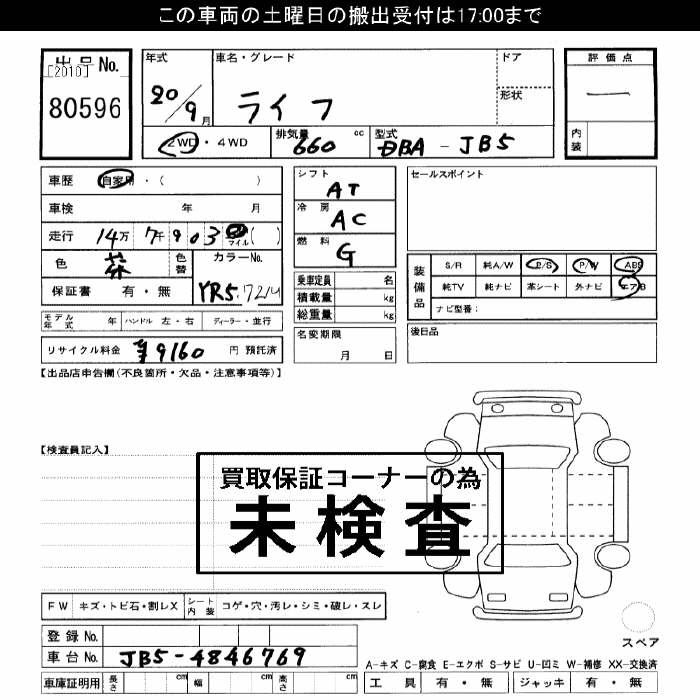 この車両の土曜日の搬出受付は17:00まで
出品No.
[2010]
80596
年式 車名・グレード ドア 評価点
20/9月 ライフ 形状 一
2WD・4WD 排気量 660 cc 型式 DBA - JB5 内装
車歴 自家用・( )
車検 年 月
走行 14万 7千903 マイル( )
色 茶 色替 カラーNo.
保証書 有・無 YR5
シフト AT
冷房 AC
燃料 G
乗車定員 名
積載量 kg
総重量 kg
セールスポイント
装備品 S/R 純A/W P/S P/W ABS
純TV 純ナビ 革シート 外ナビ エアB
ナビ型番:
モデル年式 年 ハンドル 左・右 ディーラー・並行
リサイクル料金 ¥9160 円 預託済
名変期限
月 日
後日品
【出品店申告欄(不良箇所・欠品・注意事項等)】
【検査員記入】
買取保証コーナーの為
未検査
FW キズ・トビ石・割レX シート内装 コゲ・穴・汚レ・シミ・破レ・スレ
登録No.
車台No. JB5-4846769
車庫証明用 長さ cm 幅 cm 高さ cm
スペア
A-キズ C-腐食 E-エクボ S-サビ U-凹ミ W-補修 XX-交換済
工具 有・無 ジャッキ 有・無